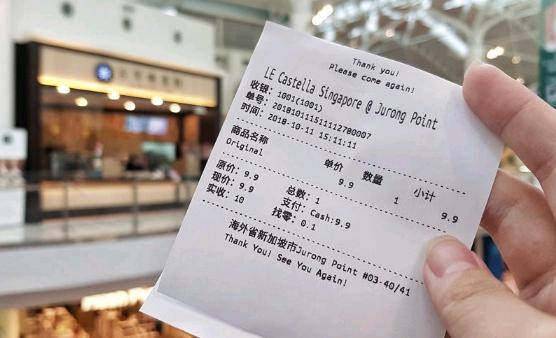 Thank you!
Please come again!
LE Castella Singapore @ Jurong Point
收银: 1001(1001)
单号: 20181011151112780007
时间: 2018-10-11 15:11:11
商品名称 单价 数量 小计
Original 9.9 1 9.9
质价: 9.9 总数: 1
现价: 9.9 支付: Cash:9.9
实收: 10 找零: 0.1
海外省新加坡市Jurong Point #03-40/41
Thank You! See You Again!